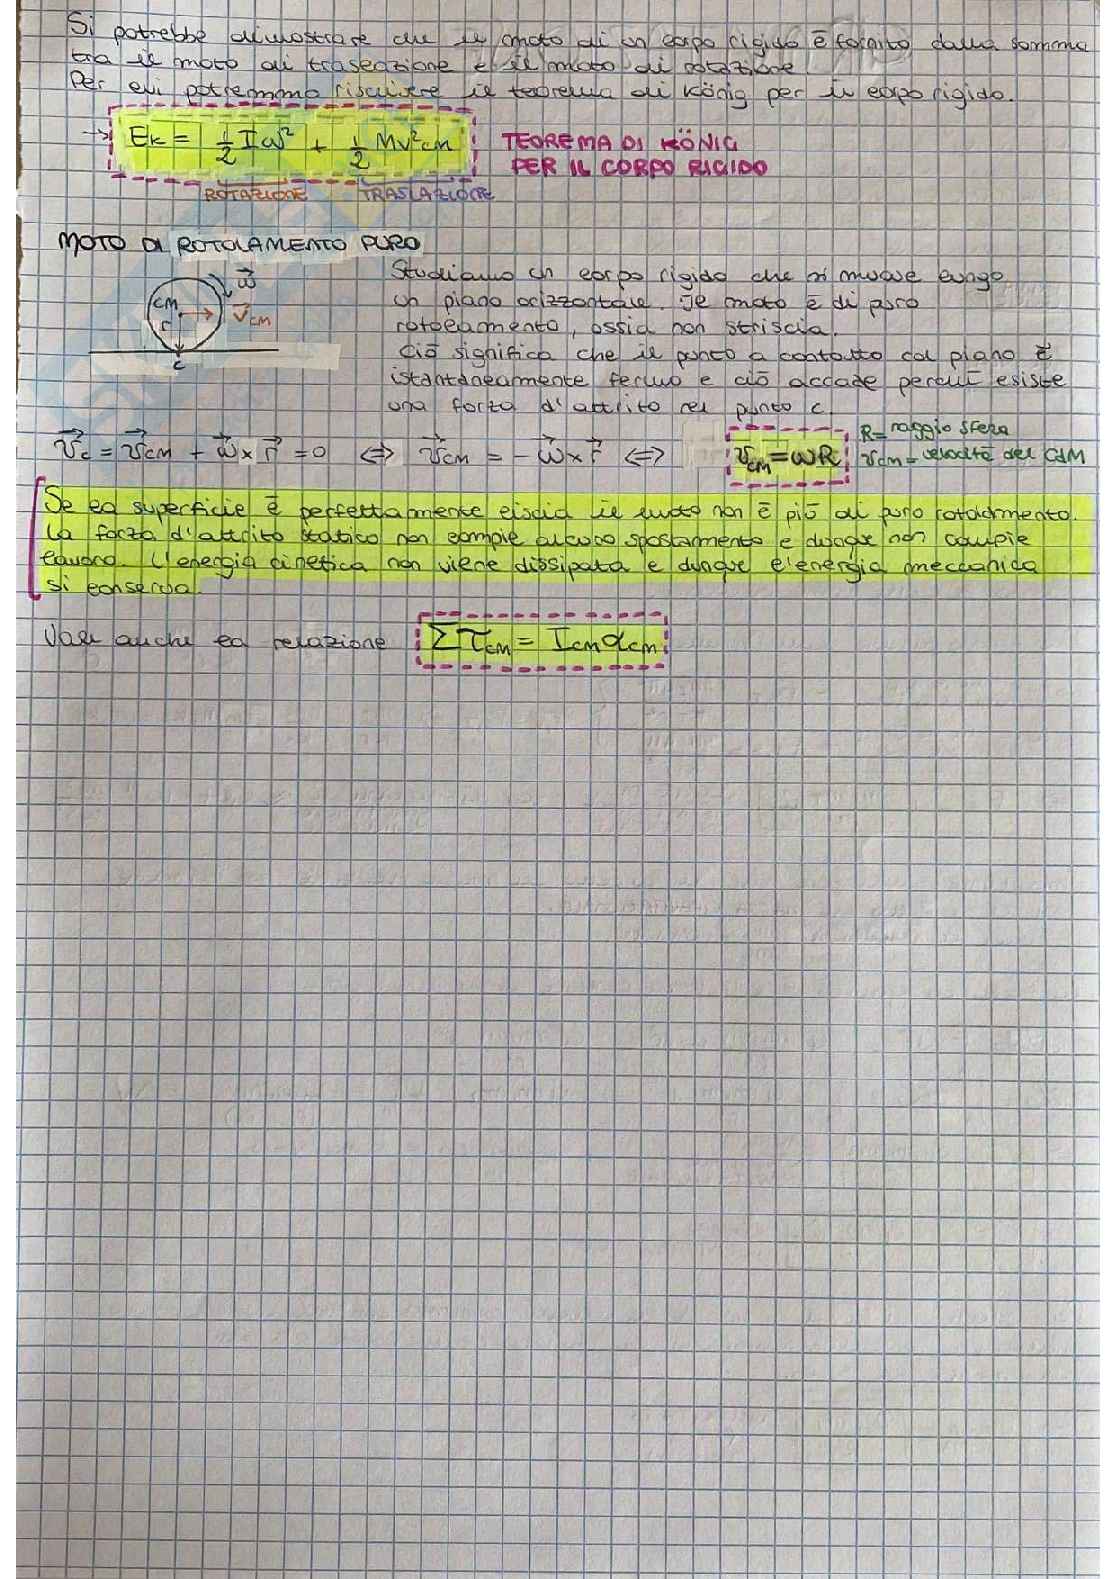 Si potrebbe dimostrare che il moto di un corpo rigido è fornito dalla somma
tra il moto di traslazione e il moto di rotazione.
Per cui potremmo riscrivere il teorema di König per il corpo rigido.
→ Ek = 1/2 Iω² + 1/2 Mv²cm TEOREMA DI KÖNIG
PER IL CORPO RIGIDO
ROTAZIONE TRASLAZIONE
MOTO DI ROTOLAMENTO PURO
Studiamo un corpo rigido che si muove lungo
un piano orizzontale. Il moto è di puro
rotolamento, ossia non striscia.
Ciò significa che il punto a contatto col piano è
istantaneamente fermo e ciò accade perché esiste
una forza d'attrito nel punto C.
ω⃗
CM
r⃗
v⃗cm
C
v⃗c = v⃗cm + ω⃗ × r⃗ = 0 ⇔ v⃗cm = -ω⃗ × r⃗ ⇔ vcm = ωR
R = raggio sfera
vcm = velocità del CdM
Se la superficie è perfettamente liscia il moto non è più di puro rotolamento.
La forza d'attrito statico non compie alcuno spostamento e dunque non compie
lavoro. L'energia cinetica non viene dissipata e dunque l'energia meccanica
si conserva.
Vale anche la relazione Στcm = Icm αcm